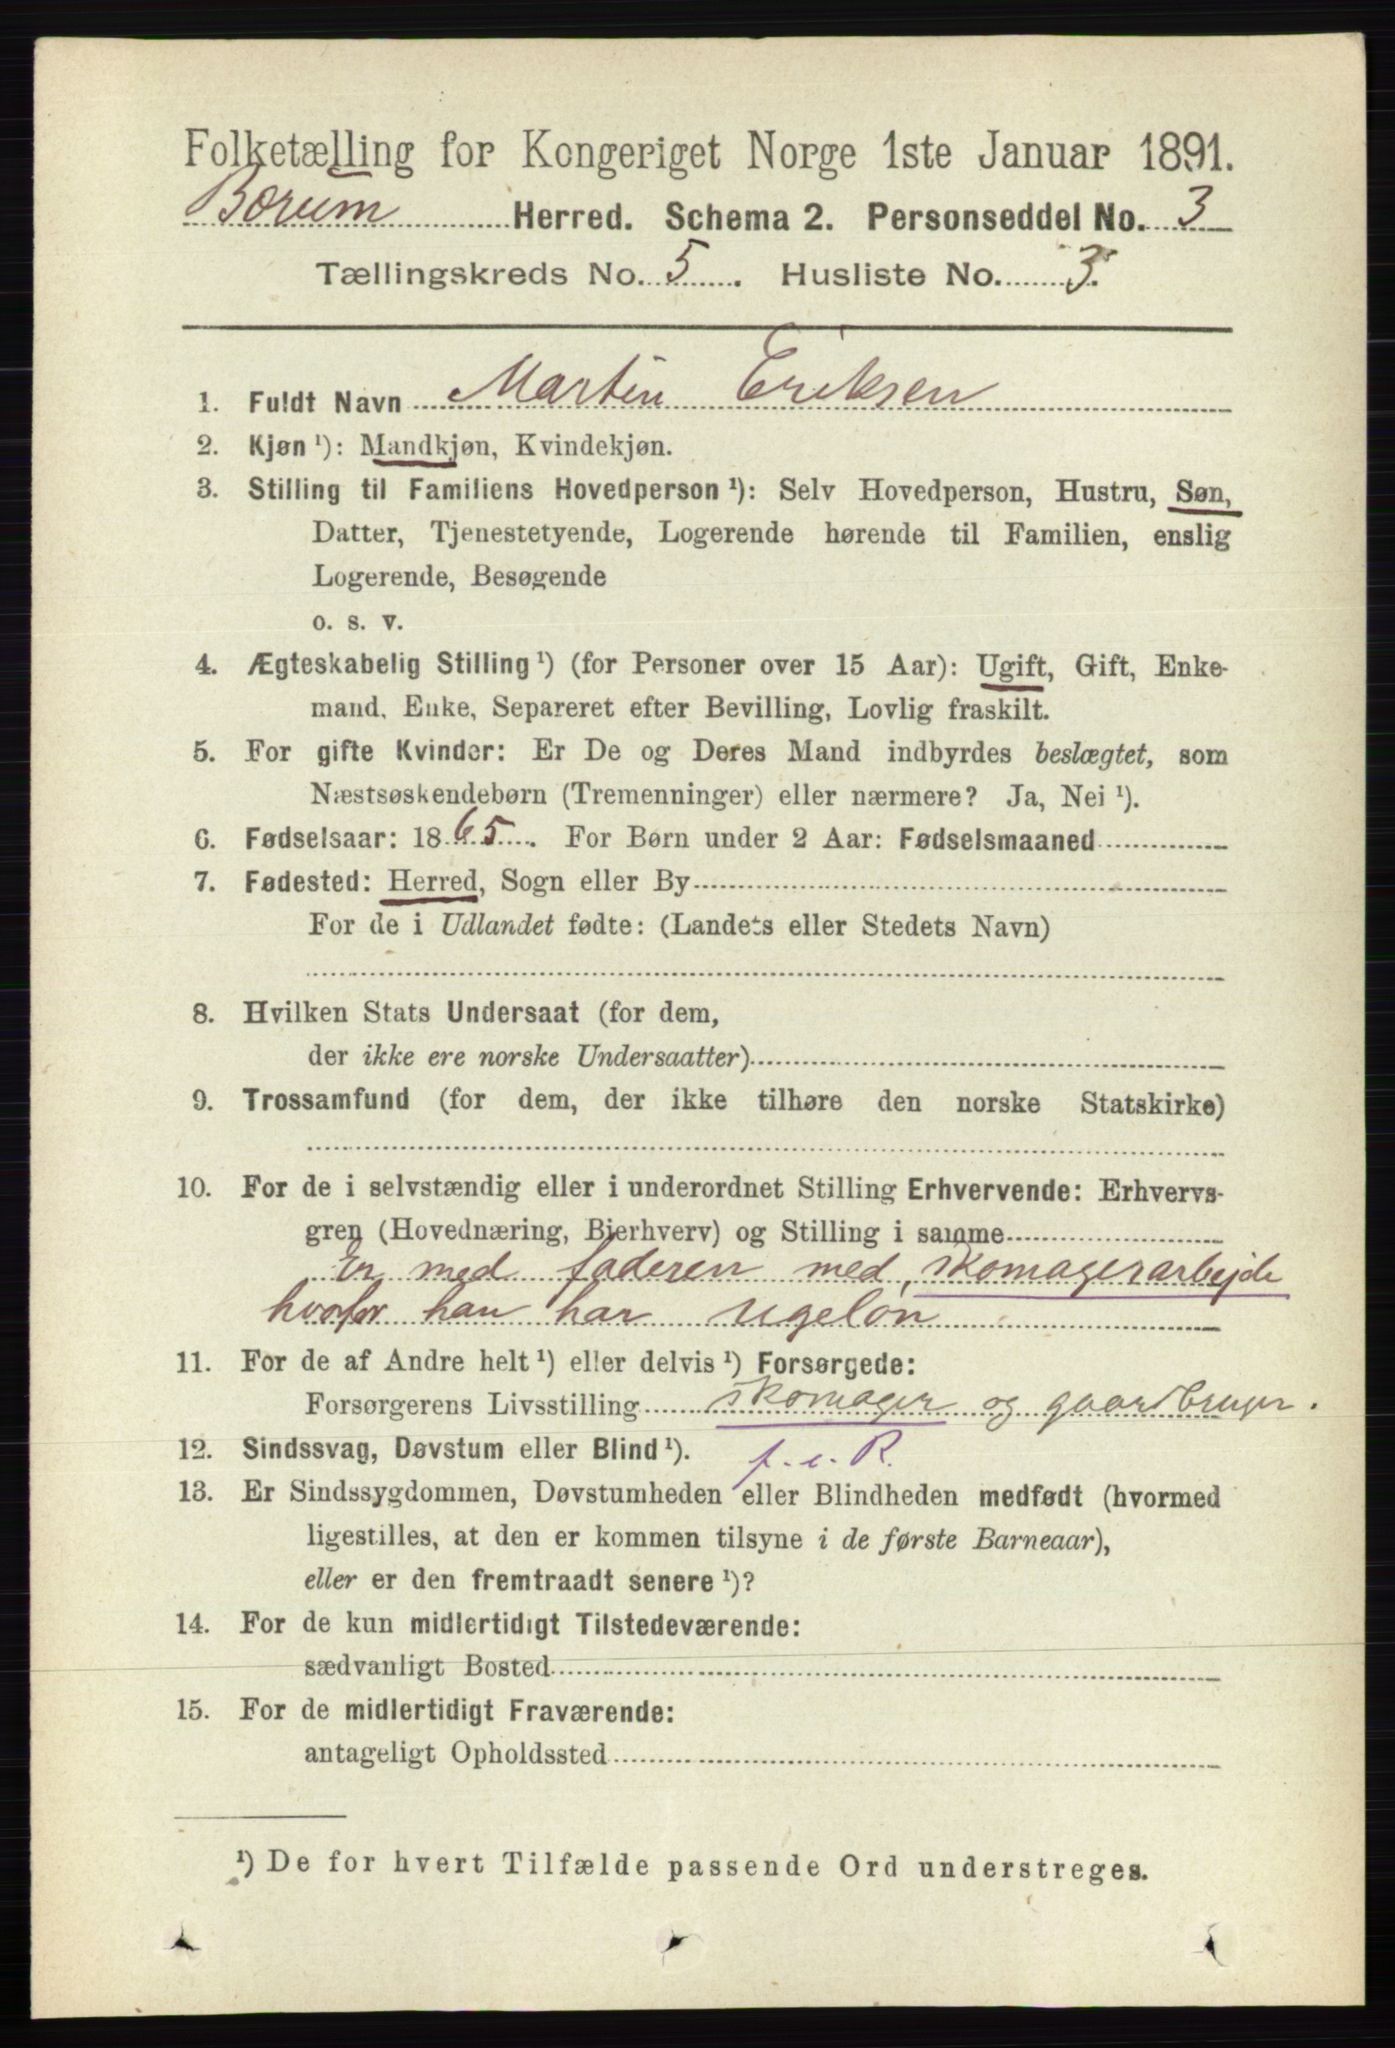 Folketælling for Kongeriget Norge 1ste Januar 1891.
Bærum Herred. Schema 2. Personseddel No. 3
Tællingskreds No. 5. Husliste No. 3.
1. Fuldt Navn Martin Eriksen
2. Kjøn ¹): Mandkjøn, Kvindekjøn.
3. Stilling til Familiens Hovedperson ¹): Selv Hovedperson, Hustru, Søn,
Datter, Tjenestetyende, Logerende hørende til Familien, enslig
Logerende, Besøgende
o. s. v.
4. Ægteskabelig Stilling ¹) (for Personer over 15 Aar): Ugift, Gift, Enke-
mand, Enke, Separeret efter Bevilling, Lovlig fraskilt.
5. For gifte Kvinder: Er De og Deres Mand indbyrdes beslægtet, som
Næstsøskendebørn (Tremenninger) eller nærmere? Ja, Nei ¹).
6. Fødselsaar: 1865. For Børn under 2 Aar: Fødselsmaaned
7. Fødested: Herred, Sogn eller By
For de i Udlandet fødte: (Landets eller Stedets Navn)
8. Hvilken Stats Undersaat (for dem,
der ikke ere norske Undersaatter)
9. Trossamfund (for dem, der ikke tilhøre den norske Statskirke)
10. For de i selvstændig eller i underordnet Stilling Erhvervende: Erhvervs-
gren (Hovednæring, Bierhverv) og Stilling i samme
Er med faderen med skomagerarbejde
hvorfor han har ugeløn
11. For de af Andre helt ¹) eller delvis ¹) Forsørgede:
Forsørgerens Livsstilling skomager og gaardbruger.
12. Sindssvag, Døvstum eller Blind ¹). f. u. R.
13. Er Sindssygdommen, Døvstumheden eller Blindheden medfødt (hvormed
ligestilles, at den er kommen tilsyne i de første Barneaar),
eller er den fremtraadt senere ¹)?
14. For de kun midlertidigt Tilstedeværende:
sædvanligt Bosted
15. For de midlertidigt Fraværende:
antageligt Opholdssted
¹) De for hvert Tilfælde passende Ord understreges.